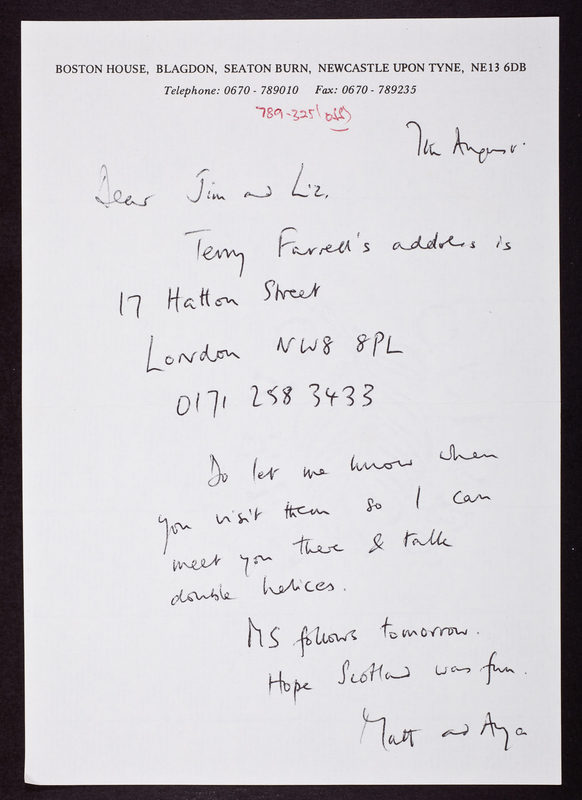 BOSTON HOUSE, BLAGDON, SEATON BURN, NEWCASTLE UPON TYNE, NE13 6DB
Telephone: 0670 - 789010 Fax: 0670 - 789235
789-325 (off)
7th August.
Dear Jim and Liz,
Terry Farrell's address is
17 Hatton Street
London NW8 8PL
0171 258 3433
Do let me know when
you visit them so I can
meet you there & talk
double helices.
MS follows tomorrow.
Hope Scotland was fun.
Matt and Anya